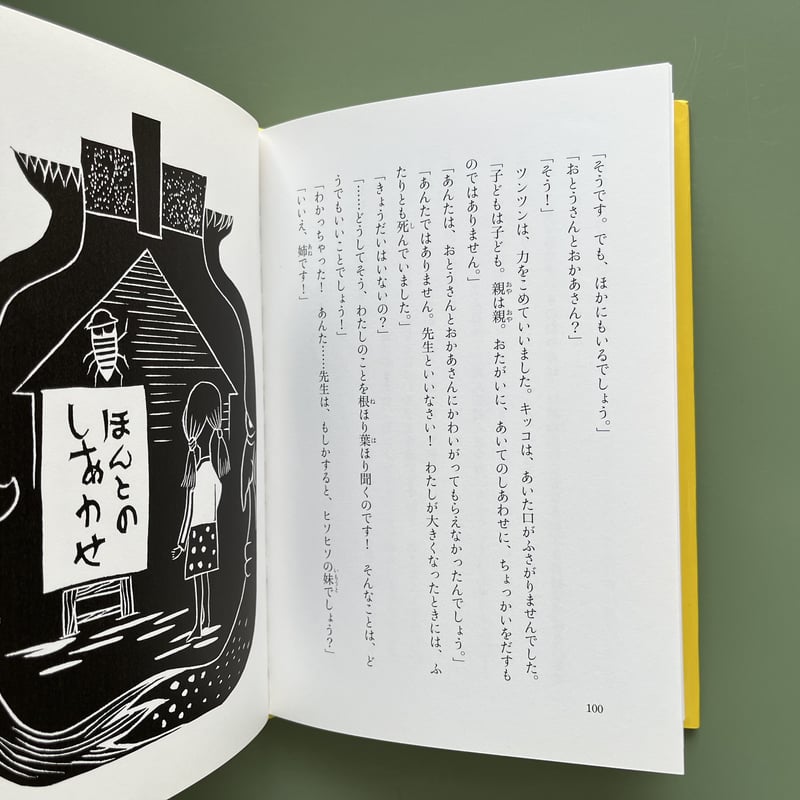 「そうです。でも、ほかにもいるでしょう。」
「おとうさんとおかあさん？」
「そう！」
ツンツンは、力をこめていいました。キッコは、あいた口がふさがりませんでした。
「子どもは子ども。親は親。おたがいに、あいてのしあわせに、ちょっかいをだすも
のではありません。」
「あんたは、おとうさんとおかあさんにかわいがってもらえなかったんでしょう。」
「あんたではありません。先生といいなさい！　わたしが大きくなったときには、ふ
たりとも死んでいました。」
「きょうだいはいないの？」
「……どうしてそう、わたしのことを根ほり葉ほり聞くのです！　そんなことは、ど
うでもいいことでしょう！」
「わかっちゃった！　あんた……先生は、もしかすると、ヒソヒソの妹でしょう？」
「いいえ、姉です！」
おや
おや
し
ね
は
いもうと
あね
100
ほんとの
しあわせ